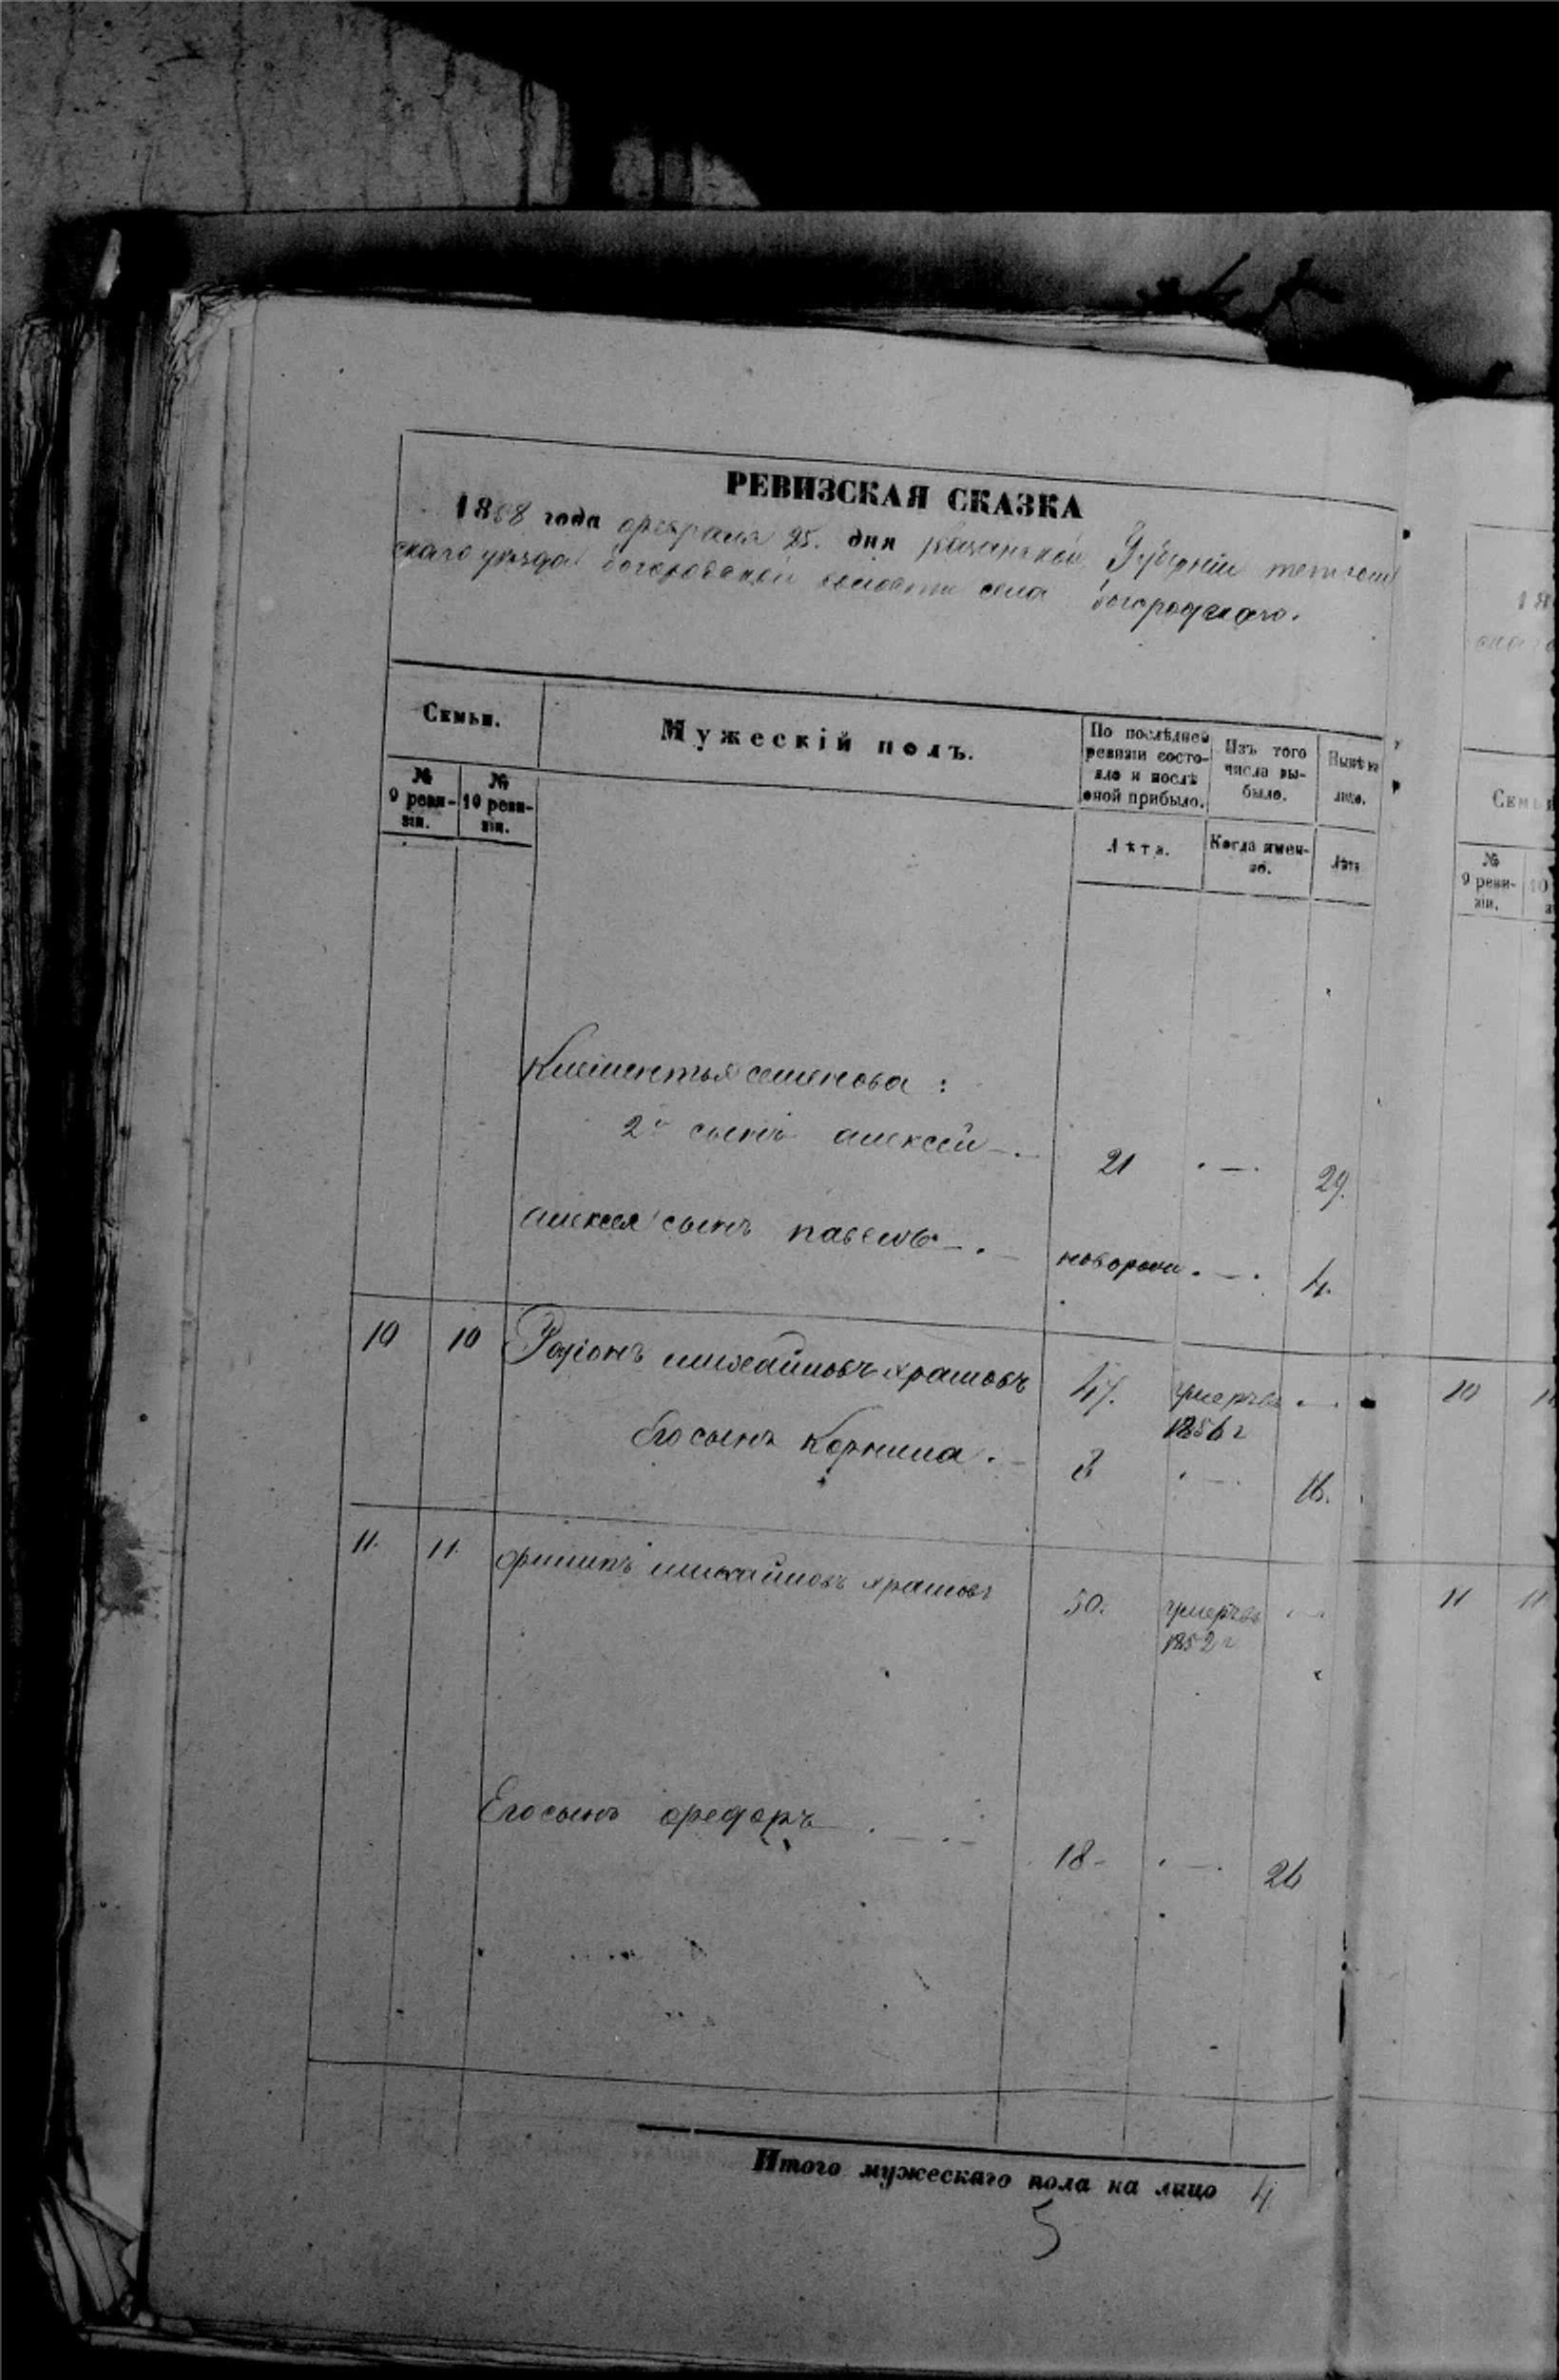 РЕВИЗСКАЯ СКАЗКА
1858 года февраля 25. дня Казанской Губерніи тетюш
скаго уѣзда богородской волости села богородскаго.
Семьи.
Мужескій полъ.
По послѣдней ревизіи состояло и послѣ оной прибыло.
Изъ того числа выбыло.
Нынѣ на лицо.
№ 9 ревизіи.
№ 10 ревизіи.
Лѣта.
Когда именно.
Лѣта
Клементья семенова :
2й сынъ алексей 21 29.
алексея сынъ павелъ новорож 4.
10 10 Родіонъ михайловъ храмовъ 47. умеръ въ
1856 г
Его сынъ Корнила 8 16.
11. 11. филипъ михайловъ храмовъ 50. умеръ въ
1852 г
Его сынъ федоръ 18 26
Итого мужескаго пола на лицо 4
5
18
скаго
Семьи
№ 9 ревизіи.
10
10 1
11 11